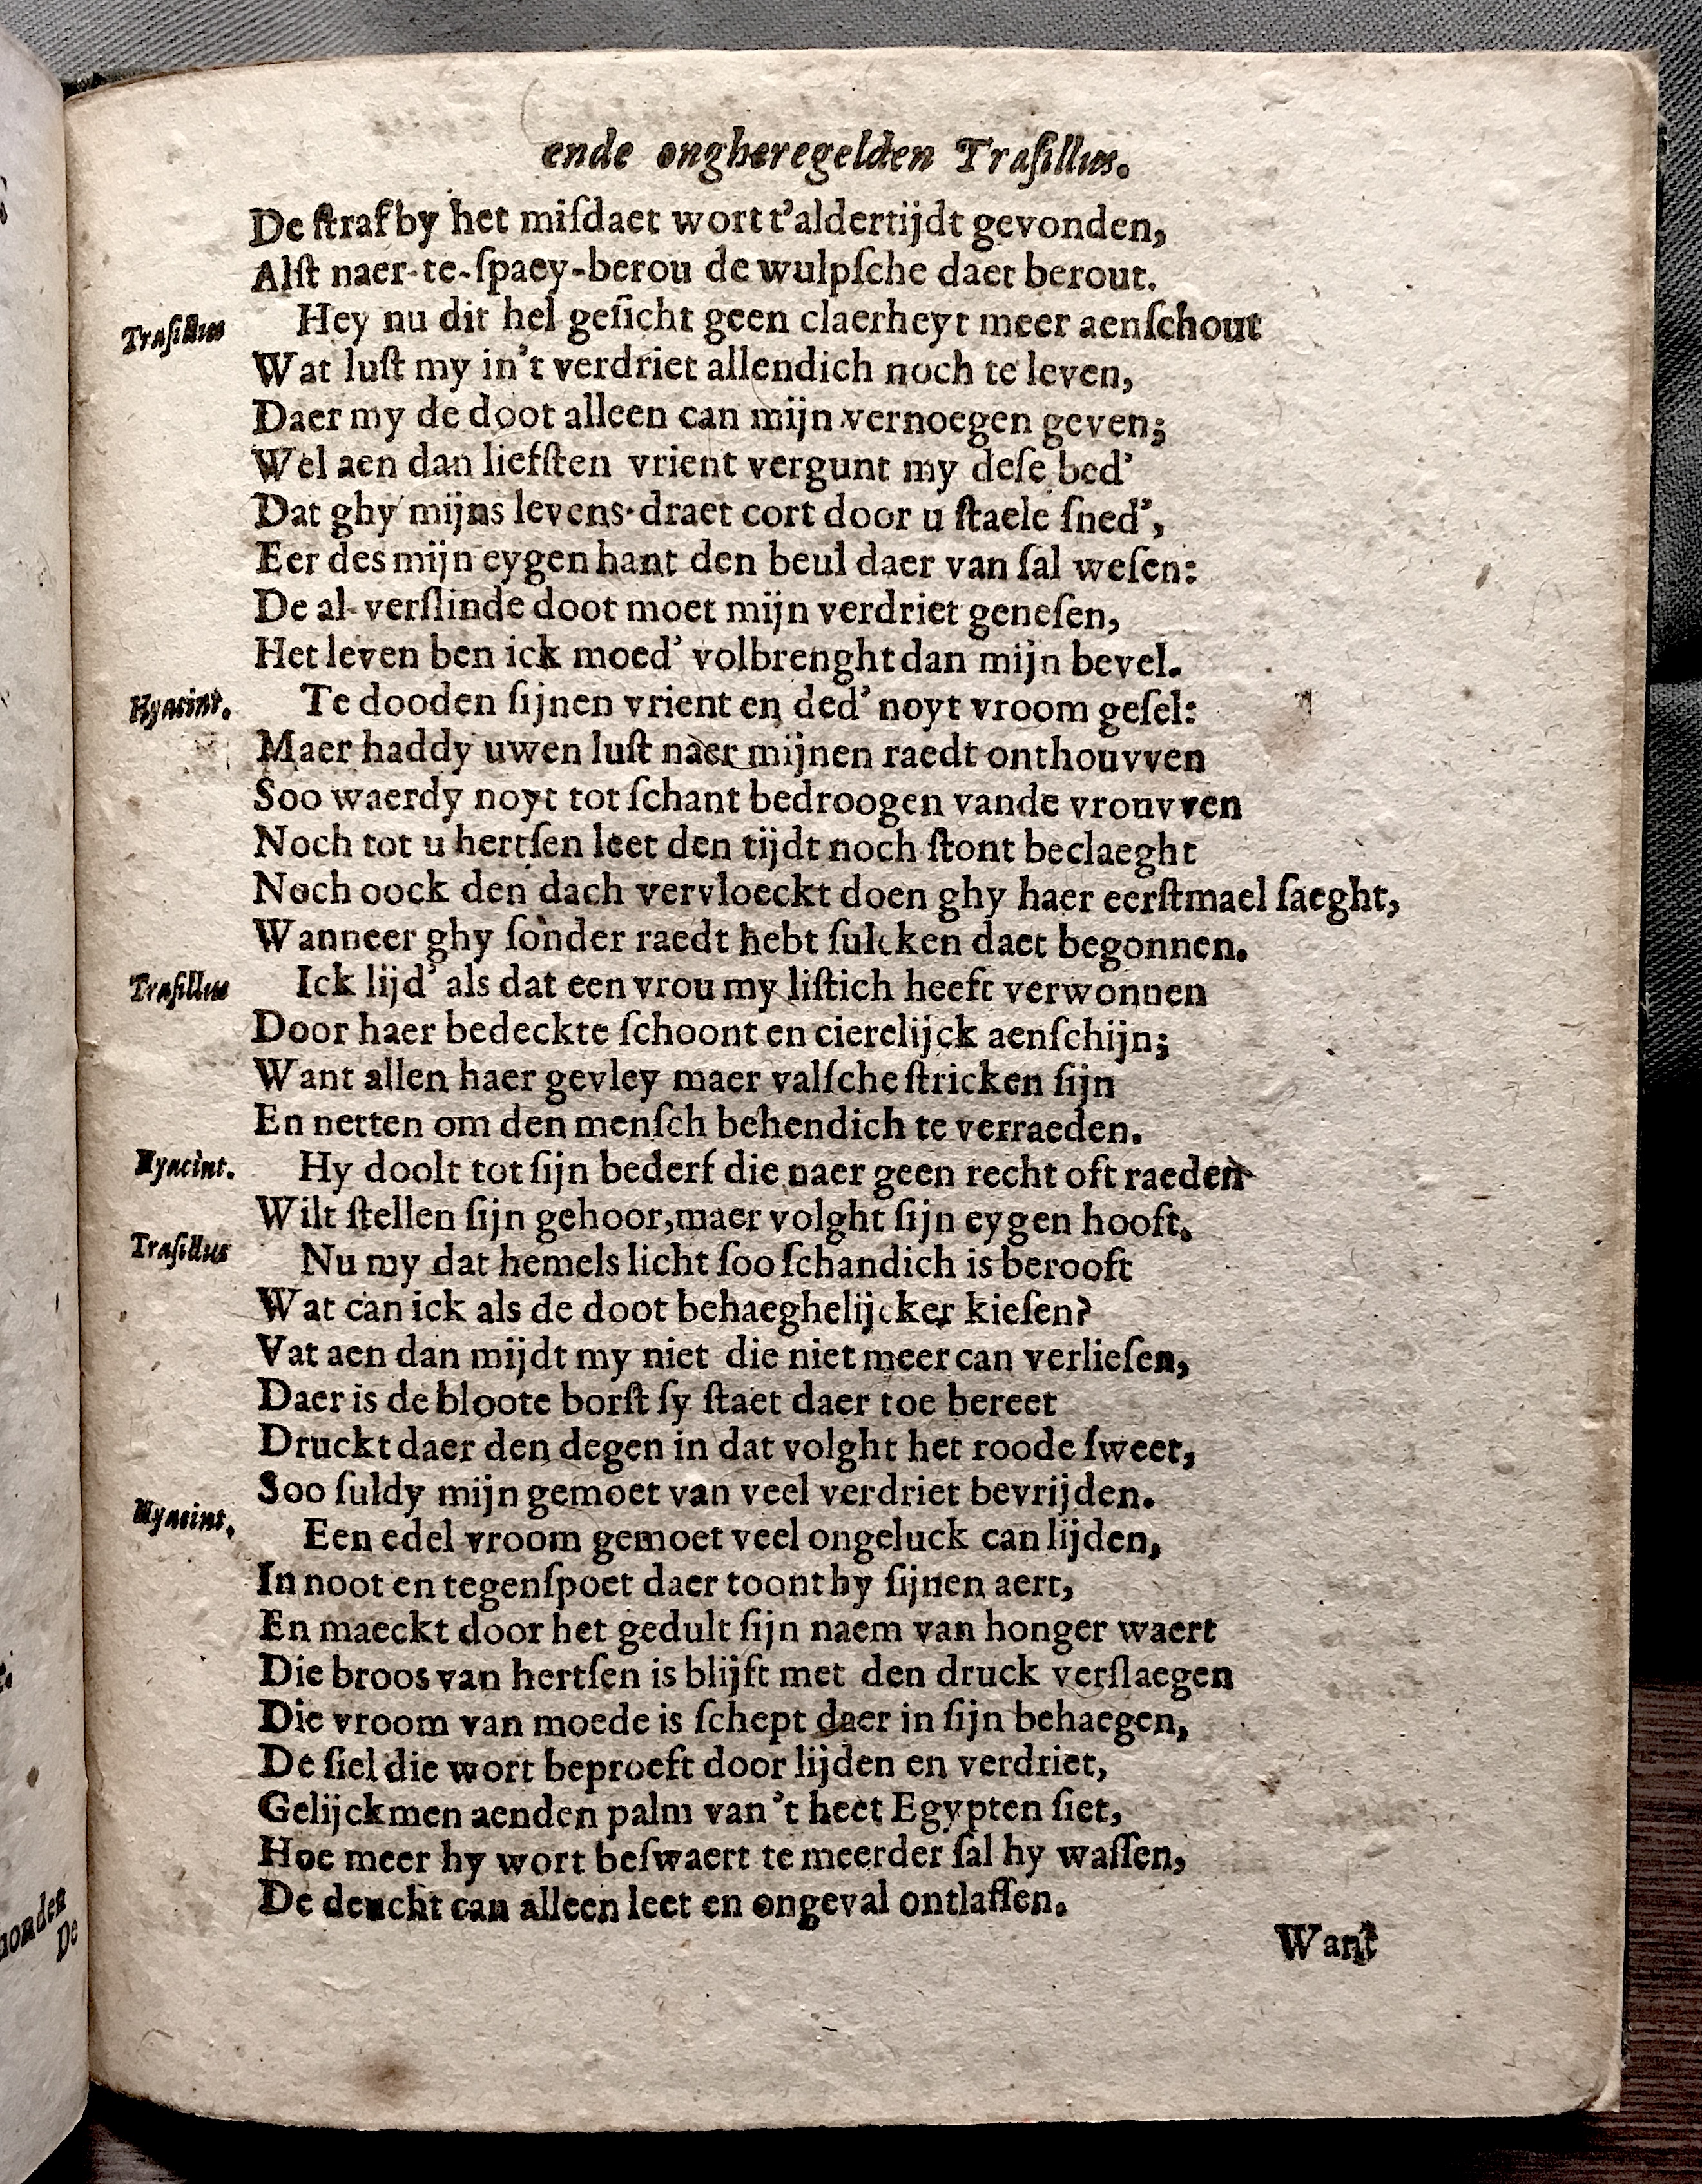 ende ongheregelden Traſillus.
De ſtraf by het miſdaet wort t'aldertijdt gevonden,
Alſt naer-te-ſpaey-berou de wulpſche daet berout.
Traſillus Hey nu dit hel geſicht geen claerheyt meer aenſchout
Wat luſt my in't verdriet allendich noch te leven,
Daer my de doot alleen can mijn vernoegen geven;
Wel aen dan liefſten vrient vergunt my deſe bed'
Dat ghy mijns levens-draet cort door u ſtaele ſned',
Eer des mijn eygen hant den beul daer van ſal weſen:
De al-verſlinde doot moet mijn verdriet geneſen,
Het leven ben ick moed' volbrenght dan mijn bevel.
Hyacint. Te dooden ſijnen vrient en ded' noyt vroom geſel:
Maer haddy uwen luſt naer mijnen raedt onthouvven
Soo waerdy noyt tot ſchant bedroogen vande vrouvven
Noch tot u hertſen leet den tijdt noch ſtont beclaeght
Noch oock den dach vervloeckt doen ghy haer eerſtmael ſaeght,
Wanneer ghy ſonder raedt hebt ſulcken daet begonnen.
Traſillus Ick lijd' als dat een vrou my liſtich heeft verwonnen
Door haer bedeckte ſchoont en cierelijck aenſchijn;
Want allen haer gevley maer valſche ſtricken ſijn
En netten om den menſch behendich te verraeden.
Hyacint. Hy doolt tot ſijn bederf die naer geen recht oft raeden
Wilt ſtellen ſijn gehoor, maer volght ſijn eygen hooft.
Traſillus Nu my dat hemels licht ſoo ſchandich is berooft
Wat can ick als de doot behaeghelijcker kieſen?
Vat aen dan mijdt my niet die niet meer can verlieſen,
Daer is de bloote borſt ſy ſtaet daer toe bereet
Druckt daer den degen in dat volght het roode ſweet,
Soo ſuldy mijn gemoet van veel verdriet bevrijden.
Hyacint. Een edel vroom gemoet veel ongeluck can lijden,
In noot en tegenſpoet daer toont hy ſijnen aert,
En maeckt door het gedult ſijn naem van honger waert
Die broos van hertſen is blijft met den druck verſlaegen
Die vroom van moede is ſchept daer in ſijn behaegen,
De ſiel die wort beproeft door lijden en verdriet,
Gelijck men aenden palm van't heet Egypten ſiet,
Hoe meer hy wort beſwaert te meerder ſal hy waſſen,
De deucht can alleen leet en ongeval ontlaſſen.
Want